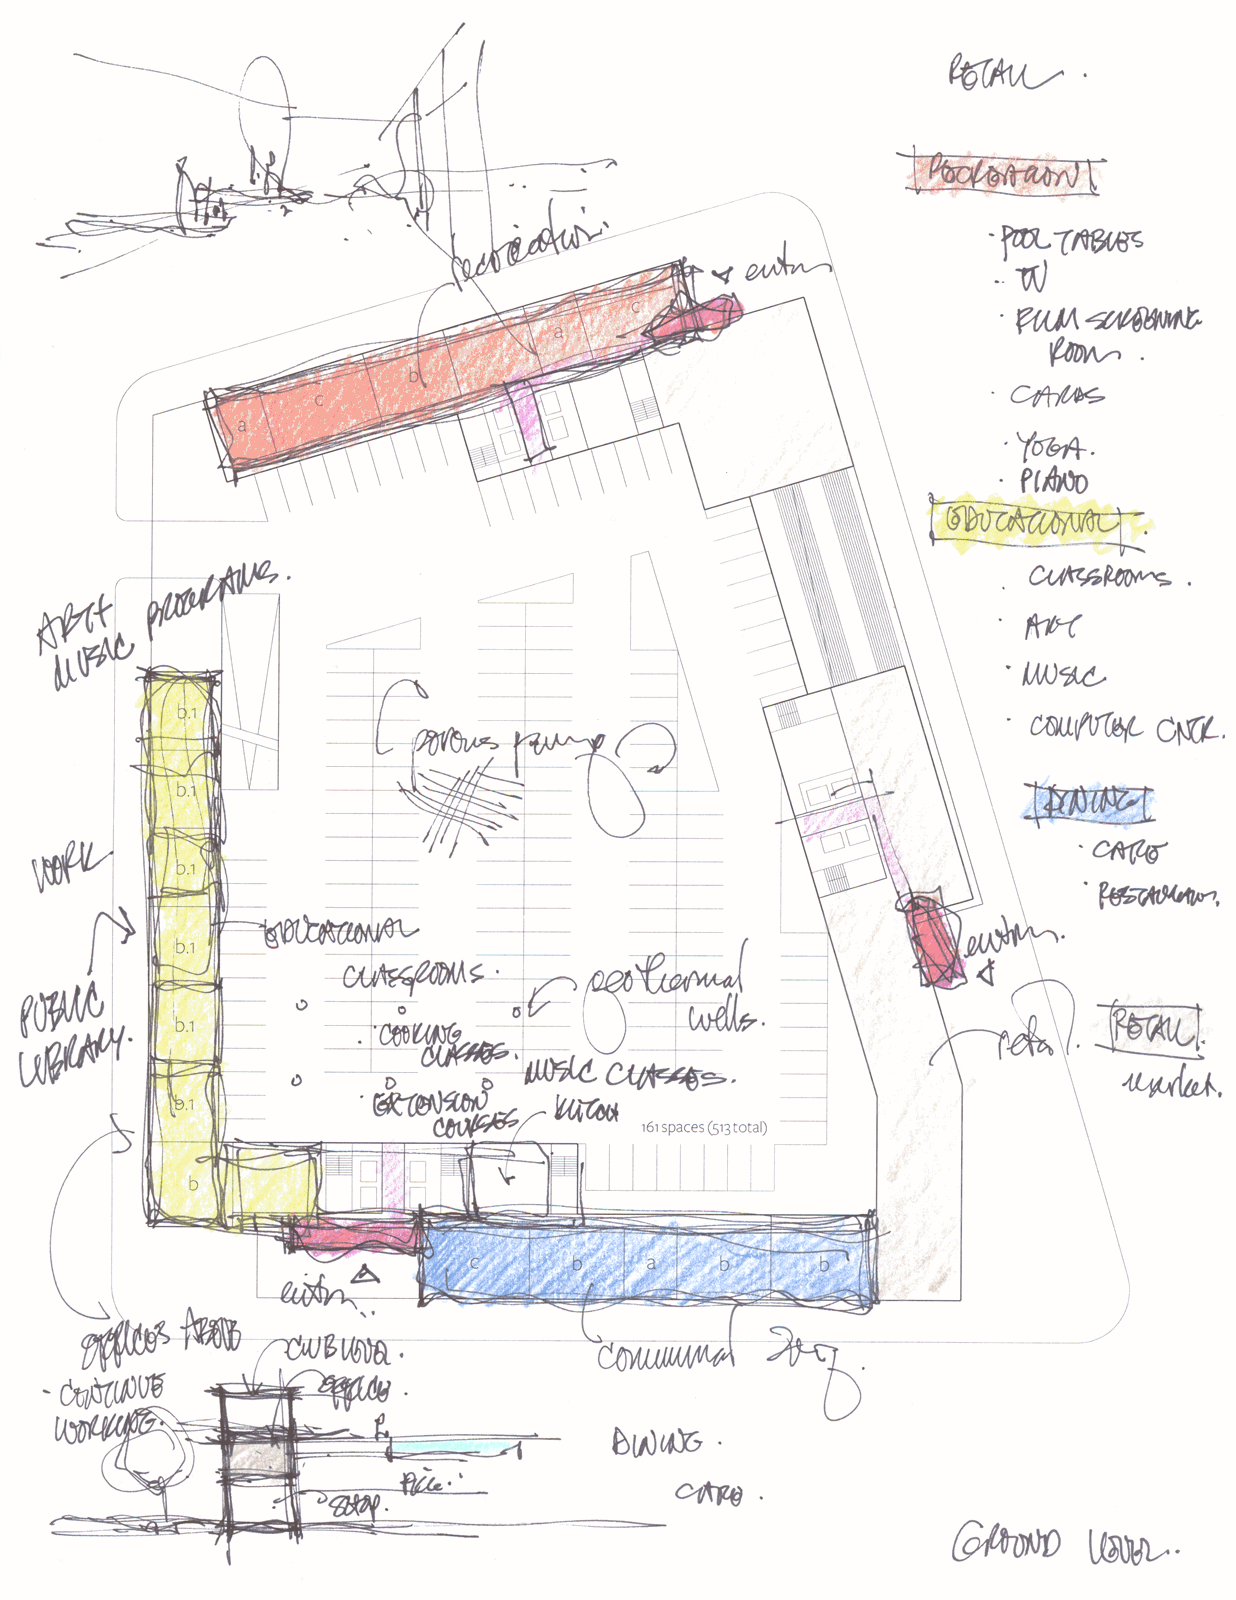 RETAIL.
RECREATION
· POOL TABLES
· TV
· FILM SCREENING
ROOM.
· CARDS
· YOGA.
· PIANO
EDUCATIONAL
· CLASSROOMS.
· ART
· MUSIC
· COMPUTER CNTR.
DINING
· CAFE
· RESTAURANT.
RETAIL
market.
recreation.
entry
a
c
b
a
c
ART +
MUSIC PROGRAMS.
b.1
b.1
b.1
b.1
b.1
b.1
b
WORK
PUBLIC
LIBRARY.
EDUCATIONAL
CLASSROOMS.
· COOKING
CLASSES.
· EXTENSION
COURSES
MUSIC CLASSES.
geothermal
wells.
161 spaces (513 total)
entry.
retail.
c
b
a
b
b
entry.
communal
OFFICES ABOVE
· CONTINUE
WORKING.
CLUB LEVEL.
OFFICE.
SHOP.
DINING.
CAFE.
GROUND LEVEL.